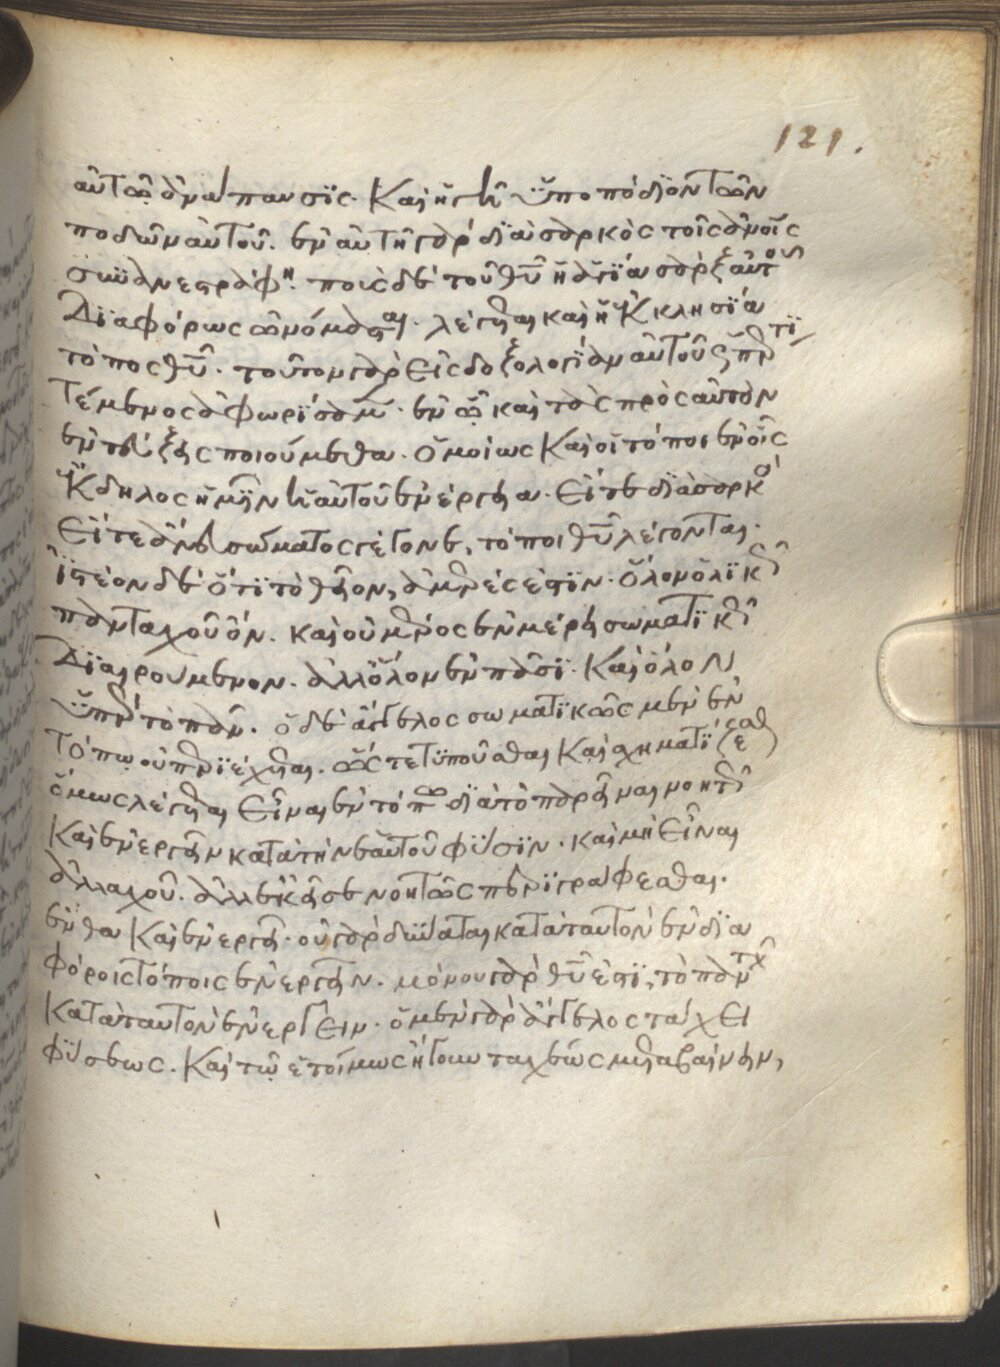 121.
αὐτῶ ἀνάπαυσϊς. Καὶ ἡ γῆ ὑποπόδϊον τῶν
ποδῶν αὐτοῦ. ἐν αὐτῆ γὰρ δϊὰ σαρκὸς τοῖς ἀνοις
συνανεστράφη. ποὺς δὲ τοῦ θυ ἡ ἁγία σὰρξ αὐτοῦ
Δϊαφόρως ὠνόμασται. λέγεται καὶ ἡ Ἐκκλησία
τόπος θυ. τοῦτον γὰρ Εἰς δοξολογίαν αὐτοῦ ὥσπερ τϊ
Τέμενος ἀφωρίσαμεν. ἐν ᾧ καὶ τὰς πρὸς αὐτὸν
ἐντεύξεις ποιούμεθα. Ὁμοίως Καὶ οἱ τόποι ἐν οἷς
Ἔκδηλος ἡμῖν ἡ αὐτοῦ ἐνέργεια. Εἴτε διὰ σαρκὸς
Εἴτε ἄνευ σώματος γέγονε, τόποι θυ λέγονται.
Ἰστέον δὲ ὅτϊ τὸ θεῖον, ἀμερές ἐστϊν. Ὅλον ὁλϊκῶς
πανταχοῦ ὄν. καὶ οὐ μέρος ἐν μέρει σωματϊκῶς
Δϊαιρούμενον. ἀλλ' ὅλον ἐν πᾶσϊ. Καὶ ὅλον
ὑπὲρ τὸ πᾶν. ὁ δὲ ἄγγελος σωματϊκῶς μὲν ἐν
Τόπω οὐ περϊέχεται. ὥς τε τϋποῦσθαι Καὶ σχηματίζεσθαι
ὅμως λέγεται Εἶναι ἐν τόπω διὰ τὸ παρεῖναι νοητῶς
Καὶ ἐνεργεῖν κατὰ τὴν ἑαυτοῦ φύσϊν. καὶ μὴ Εἶναι
ἀλλαχοῦ. ἀλλ' ἐκεῖσε νοητῶς περϊγράφεσθαι.
ἔνθα Καὶ ἐνεργεῖ. οὐ γὰρ δύναται κατὰ ταυτὸν ἐν δϊα
φόροις τόποις ἐνεργεῖν. μόνου γὰρ θυ ἐστϊ, τὸ πανταχοῦ
Κατὰ ταυτὸν ἐνεργΕῖν. ὁ μὲν γὰρ ἄγγελος τάχΕι
φύσεως. Καὶ τῶ ἑτοίμως ἤγουν ταχέως μεταβαίνειν,